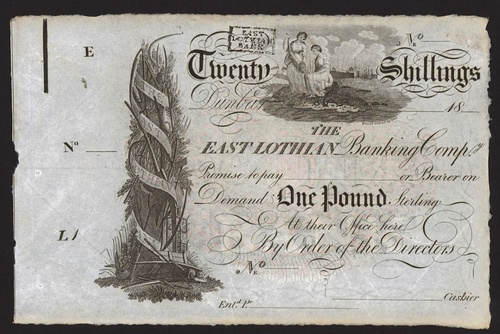 E
EAST
LOTHIAN
BANK
No
Twenty Shillings
Dunbar 18
THE
No EAST LOTHIAN Banking Compy
Promise to pay or Bearer on
Demand One Pound Sterling
L
At their Office here
By Order of the Directors
No
Entd. Pr. Cashier